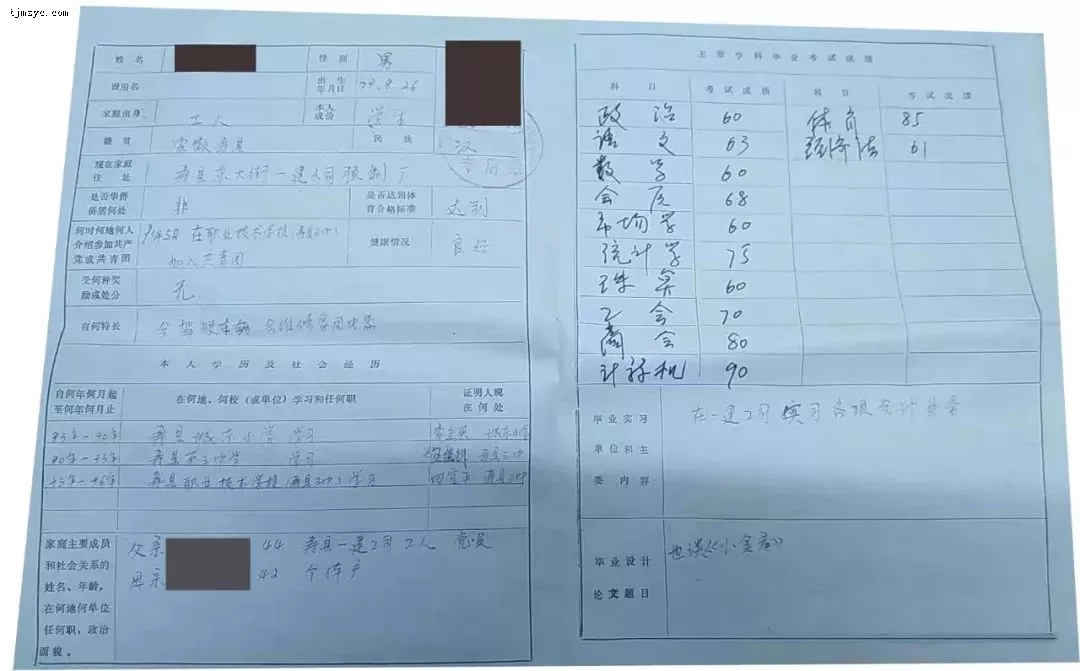 tjmsyc.com
姓名 性别 男
曾用名 出生年月日 79.8.26
家庭出身 工人 本人成份 学生
籍贯 安徽寿县 民族 汉
现在家庭住址 寿县东大街一建公司预制厂
是否华侨侨居何处 非 是否达到体育合格标准 达到
何时何地何人介绍参加共产党或共青团 在职业技术学校(寿县三中) 加入共青团 健康情况 良好
受何种奖励或处分 无
有何特长 会驾驶车辆 会维修家用电器
本人学历及社会经历
自何年何月起至何年何月止 在何地、何校(或单位)学习和任何职 证明人现在何处
85年-90年 寿县城东小学 学习 城东小学
90年-93年 寿县 中学 学习 寿县三中
93年-96年 寿县职业技术学校(寿县三中)学习 寿县三中
家庭主要成员和社会关系的姓名、年龄,在何地何单位任何职,政治面貌。
父亲 44 寿县一建公司 工人 党员
母亲 42 个体户
主要学科毕业考试成绩
科目 考试成绩 科目 考试成绩
政治 60 体育 85
语文 63 经济法 61
数学 60
会原 68
市场学 60
统计学 75
珠算 60
工会 70
商会 80
计算机 90
毕业实习单位和主要内容 在一建公司实习各项会计业务
毕业设计论文题目 也谈《小金库》